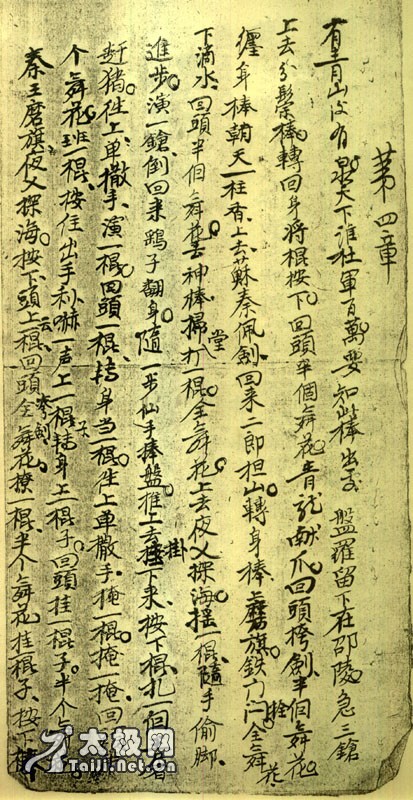 第四章
有青山没有泉天下淮杜軍百萬要知此棒出處盤羅留下在邵陵急三鎗
上去分鬃棒轉回身將棍按下回頭半個舞花青龍献爪回頭挎劍半個舞花
纏身棒朝天一柱香上去蘇秦佩劍回來二郎担山轉身棒磨旗鉄門闩全舞花
下滴水回頭半個舞花去神棒掃打一棍全舞花上去夜叉探海搖一棍隨手偷脚
進步演一鎗倒回来鷂子翻身隨一步仙手棒盤推上去掛下来按下棍扎一個
赶猪往上单撒手演一棍回頭一棍轉身当一棍往上单撒手掩一棍掩一掩回
个舞花班一棍按住出手利嚇一声上一棍轉身上一棍子回頭挂一棍子半个
秦王磨旗夜叉探海按下頭上一棍回頭全舞花撩一棍半个舞花挂一棍子按下
太极网
Taiji.net.cn